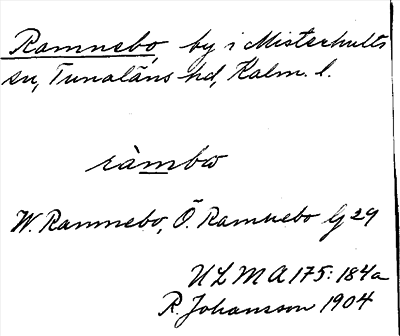 Ramnebo, by i Misterhults
sn, Tunaläns hd, Kalm. l.
ràmbω
W. Ramnebo, Ö. Ramnebo Gj 29
ULMA 175:184a
R. Johansson 1904